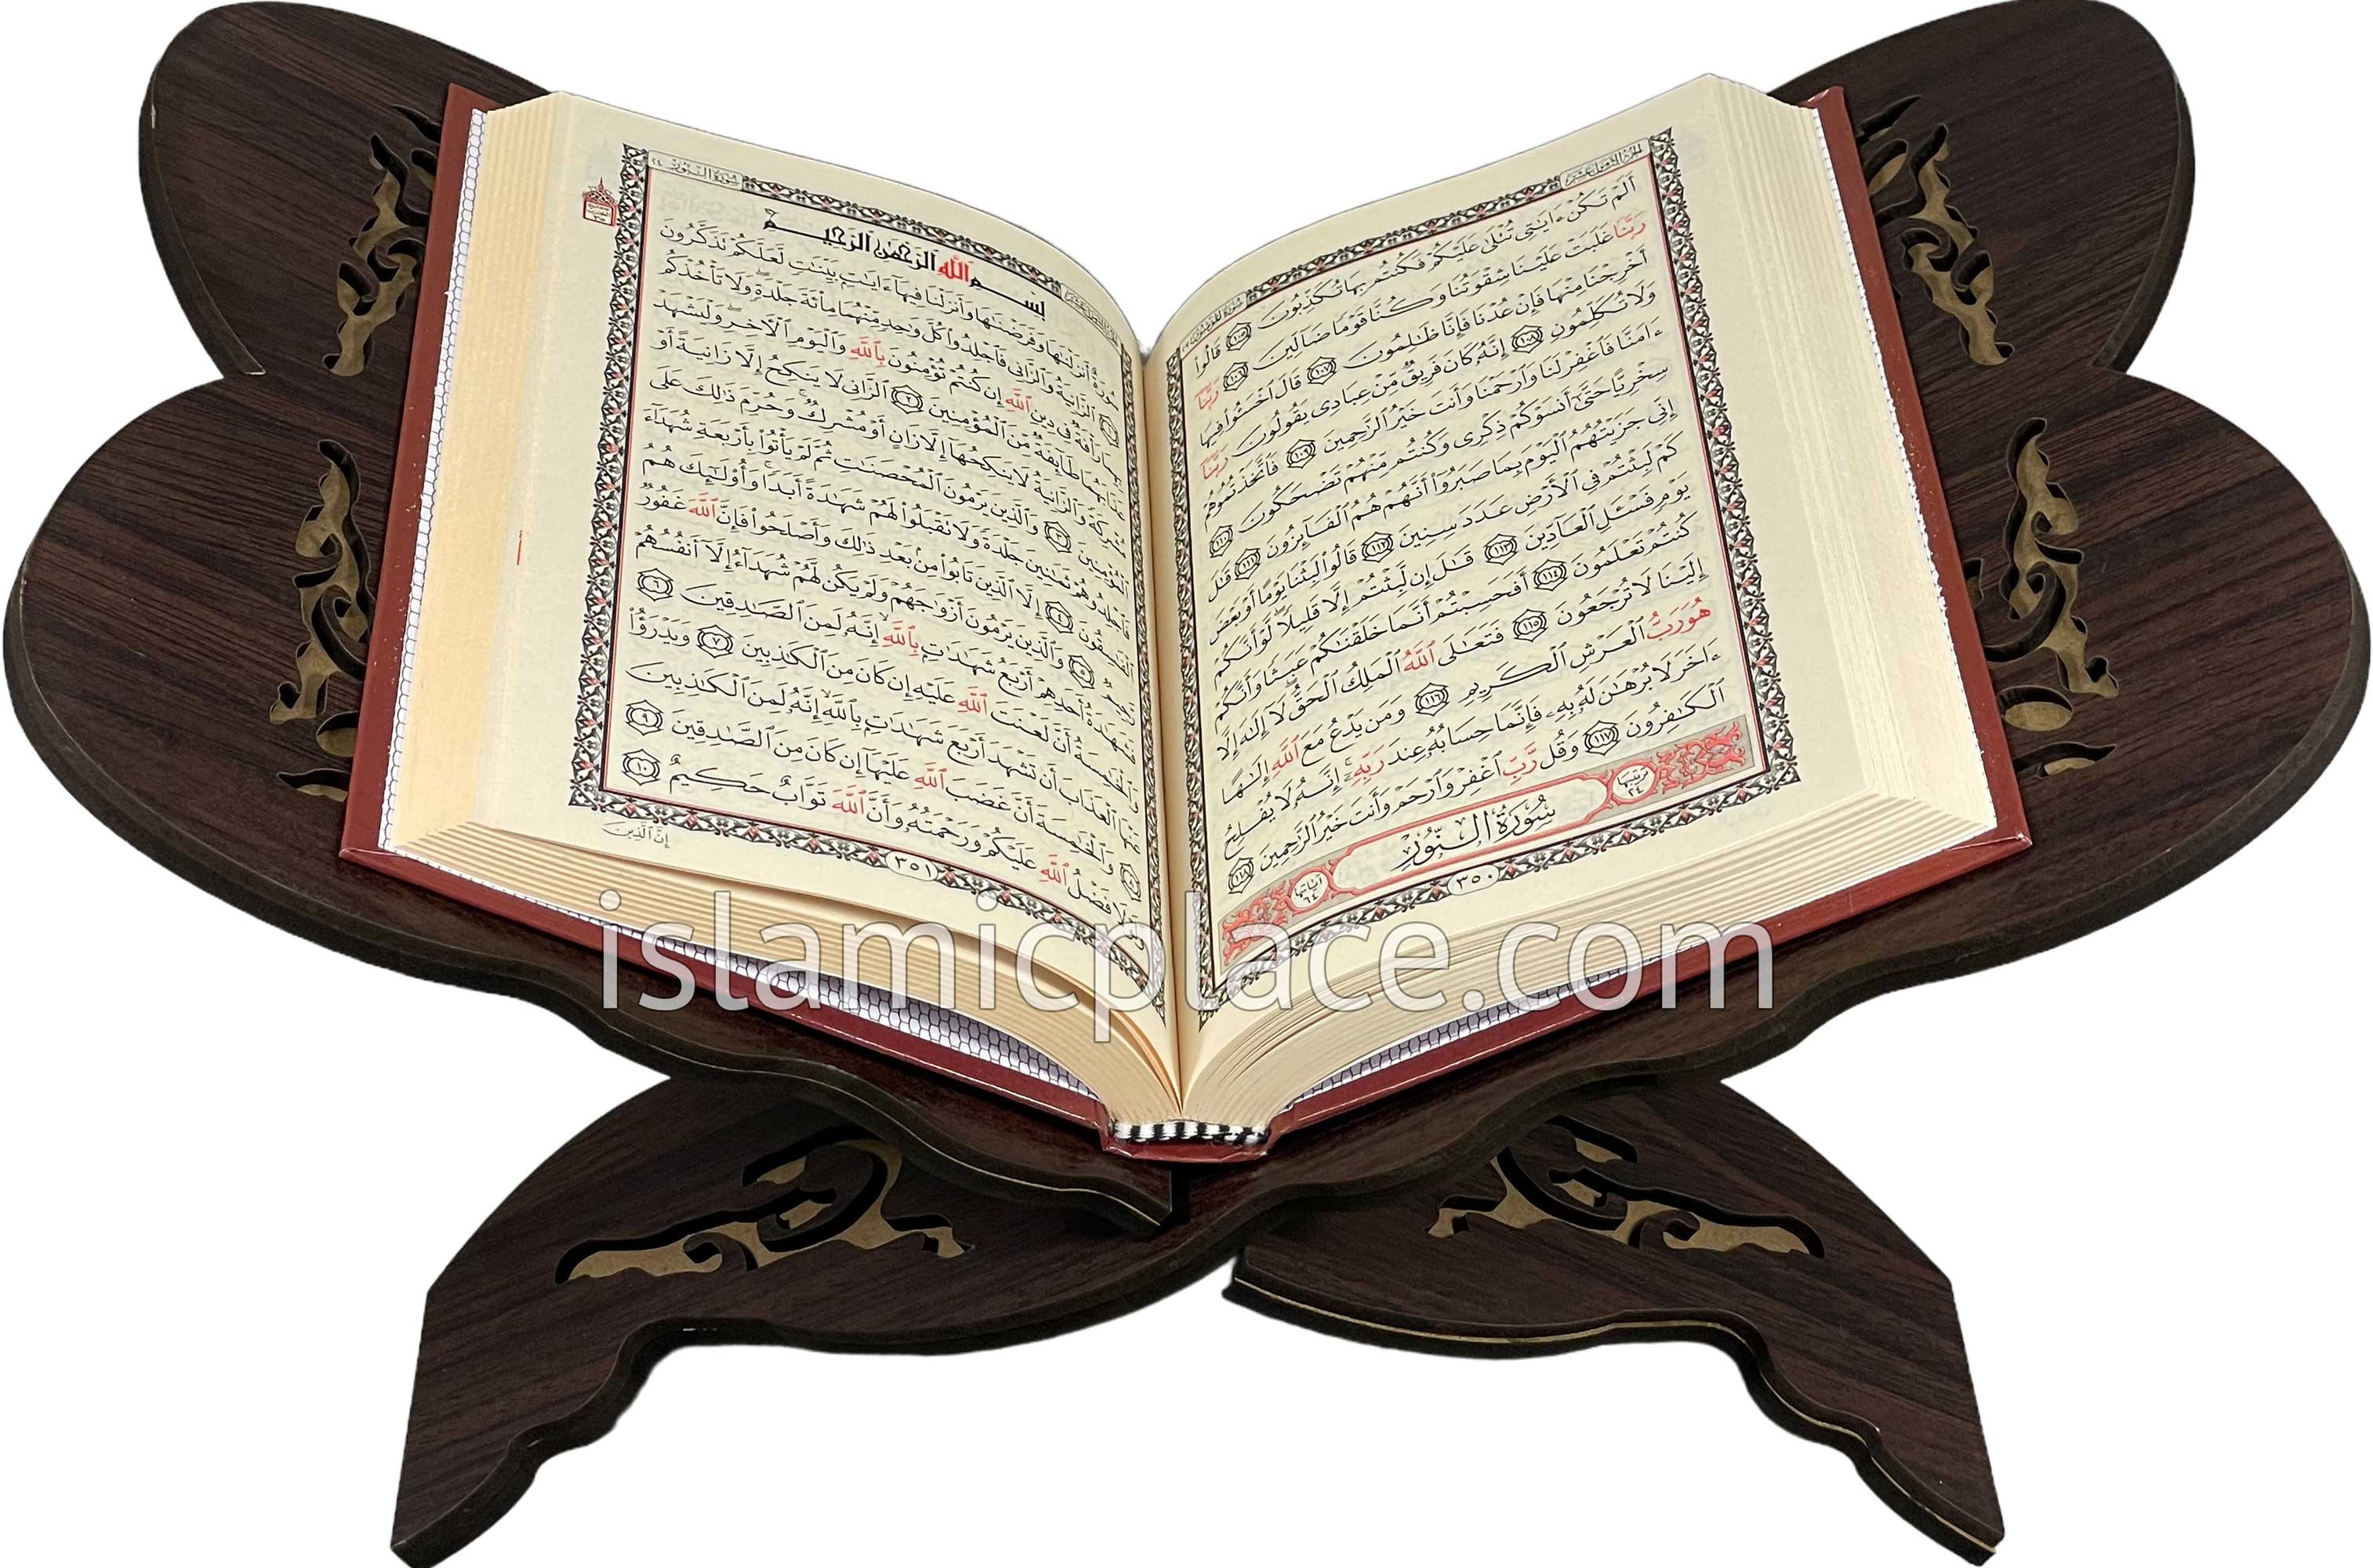 الجزء الثامن عشر
سورة المؤمنون ٢٣
أَلَمْ تَكُنْ ءَايَٰتِى تُتْلَىٰ عَلَيْكُمْ فَكُنتُم بِهَا تُكَذِّبُونَ ١٠٥ قَالُوا۟
رَبَّنَا غَلَبَتْ عَلَيْنَا شِقْوَتُنَا وَكُنَّا قَوْمًا ضَآلِّينَ ١٠٦ رَبَّنَآ
أَخْرِجْنَا مِنْهَا فَإِنْ عُدْنَا فَإِنَّا ظَٰلِمُونَ ١٠٧ قَالَ ٱخْسَـُٔوا۟ فِيهَا
وَلَا تُكَلِّمُونِ ١٠٨ إِنَّهُۥ كَانَ فَرِيقٌ مِّنْ عِبَادِى يَقُولُونَ رَبَّنَآ
ءَامَنَّا فَٱغْفِرْ لَنَا وَٱرْحَمْنَا وَأَنتَ خَيْرُ ٱلرَّٰحِمِينَ ١٠٩ فَٱتَّخَذْتُمُوهُمْ
سِخْرِيًّا حَتَّىٰٓ أَنسَوْكُمْ ذِكْرِى وَكُنتُم مِّنْهُمْ تَضْحَكُونَ ١١٠
إِنِّى جَزَيْتُهُمُ ٱلْيَوْمَ بِمَا صَبَرُوٓا۟ أَنَّهُمْ هُمُ ٱلْفَآئِزُونَ ١١١ قَٰلَ
كَمْ لَبِثْتُمْ فِى ٱلْأَرْضِ عَدَدَ سِنِينَ ١١٢ قَالُوا۟ لَبِثْنَا يَوْمًا أَوْ بَعْضَ
يَوْمٍ فَسْـَٔلِ ٱلْعَآدِّينَ ١١٣ قَٰلَ إِن لَّبِثْتُمْ إِلَّا قَلِيلًا ۖ لَّوْ أَنَّكُمْ
كُنتُمْ تَعْلَمُونَ ١١٤ أَفَحَسِبْتُمْ أَنَّمَا خَلَقْنَٰكُمْ عَبَثًا وَأَنَّكُمْ
إِلَيْنَا لَا تُرْجَعُونَ ١١٥ فَتَعَٰلَى ٱللَّهُ ٱلْمَلِكُ ٱلْحَقُّ ۖ لَآ إِلَٰهَ إِلَّا
هُوَ رَبُّ ٱلْعَرْشِ ٱلْكَرِيمِ ١١٦ وَمَن يَدْعُ مَعَ ٱللَّهِ إِلَٰهًا
ءَاخَرَ لَا بُرْهَٰنَ لَهُۥ بِهِۦ فَإِنَّمَا حِسَابُهُۥ عِندَ رَبِّهِۦٓ ۚ إِنَّهُۥ لَا يُفْلِحُ
ٱلْكَٰفِرُونَ ١١٧ وَقُل رَّبِّ ٱغْفِرْ وَٱرْحَمْ وَأَنتَ خَيْرُ ٱلرَّٰحِمِينَ ١١٨
ترتيبها ٢٤ سُورَةُ النُّورِ آياتها ٦٤
٣٥٠
الجزء الثامن عشر
سورة النور ٢٤
بِسْمِ ٱللَّهِ ٱلرَّحْمَٰنِ ٱلرَّحِيمِ
سُورَةٌ أَنزَلْنَٰهَا وَفَرَضْنَٰهَا وَأَنزَلْنَا فِيهَآ ءَايَٰتٍۭ بَيِّنَٰتٍ لَّعَلَّكُمْ تَذَكَّرُونَ
١ ٱلزَّانِيَةُ وَٱلزَّانِى فَٱجْلِدُوا۟ كُلَّ وَٰحِدٍ مِّنْهُمَا مِا۟ئَةَ جَلْدَةٍ ۖ وَلَا تَأْخُذْكُم
بِهِمَا رَأْفَةٌ فِى دِينِ ٱللَّهِ إِن كُنتُمْ تُؤْمِنُونَ بِٱللَّهِ وَٱلْيَوْمِ ٱلْءَاخِرِ ۖ وَلْيَشْهَدْ
عَذَابَهُمَا طَآئِفَةٌ مِّنَ ٱلْمُؤْمِنِينَ ٢ ٱلزَّانِى لَا يَنكِحُ إِلَّا زَانِيَةً أَوْ
مُشْرِكَةً وَٱلزَّانِيَةُ لَا يَنكِحُهَآ إِلَّا زَانٍ أَوْ مُشْرِكٌ ۚ وَحُرِّمَ ذَٰلِكَ عَلَى
ٱلْمُؤْمِنِينَ ٣ وَٱلَّذِينَ يَرْمُونَ ٱلْمُحْصَنَٰتِ ثُمَّ لَمْ يَأْتُوا۟ بِأَرْبَعَةِ شُهَدَآءَ
فَٱجْلِدُوهُمْ ثَمَٰنِينَ جَلْدَةً وَلَا تَقْبَلُوا۟ لَهُمْ شَهَٰدَةً أَبَدًا ۚ وَأُو۟لَٰٓئِكَ هُمُ
ٱلْفَٰسِقُونَ ٤ إِلَّا ٱلَّذِينَ تَابُوا۟ مِنۢ بَعْدِ ذَٰلِكَ وَأَصْلَحُوا۟ فَإِنَّ ٱللَّهَ غَفُورٌ
رَّحِيمٌ ٥ وَٱلَّذِينَ يَرْمُونَ أَزْوَٰجَهُمْ وَلَمْ يَكُن لَّهُمْ شُهَدَآءُ إِلَّآ أَنفُسُهُمْ
فَشَهَٰدَةُ أَحَدِهِمْ أَرْبَعُ شَهَٰدَٰتٍۭ بِٱللَّهِ ۙ إِنَّهُۥ لَمِنَ ٱلصَّٰدِقِينَ ٦
وَٱلْخَٰمِسَةُ أَنَّ لَعْنَتَ ٱللَّهِ عَلَيْهِ إِن كَانَ مِنَ ٱلْكَٰذِبِينَ ٧ وَيَدْرَؤُا۟
عَنْهَا ٱلْعَذَابَ أَن تَشْهَدَ أَرْبَعَ شَهَٰدَٰتٍۭ بِٱللَّهِ ۙ إِنَّهُۥ لَمِنَ ٱلْكَٰذِبِينَ
٨ وَٱلْخَٰمِسَةَ أَنَّ غَضَبَ ٱللَّهِ عَلَيْهَآ إِن كَانَ مِنَ ٱلصَّٰدِقِينَ ٩
وَلَوْلَا فَضْلُ ٱللَّهِ عَلَيْكُمْ وَرَحْمَتُهُۥ وَأَنَّ ٱللَّهَ تَوَّابٌ حَكِيمٌ ١٠
٣٥١
إِنَّ ٱلَّذِينَ
islamicplace.com